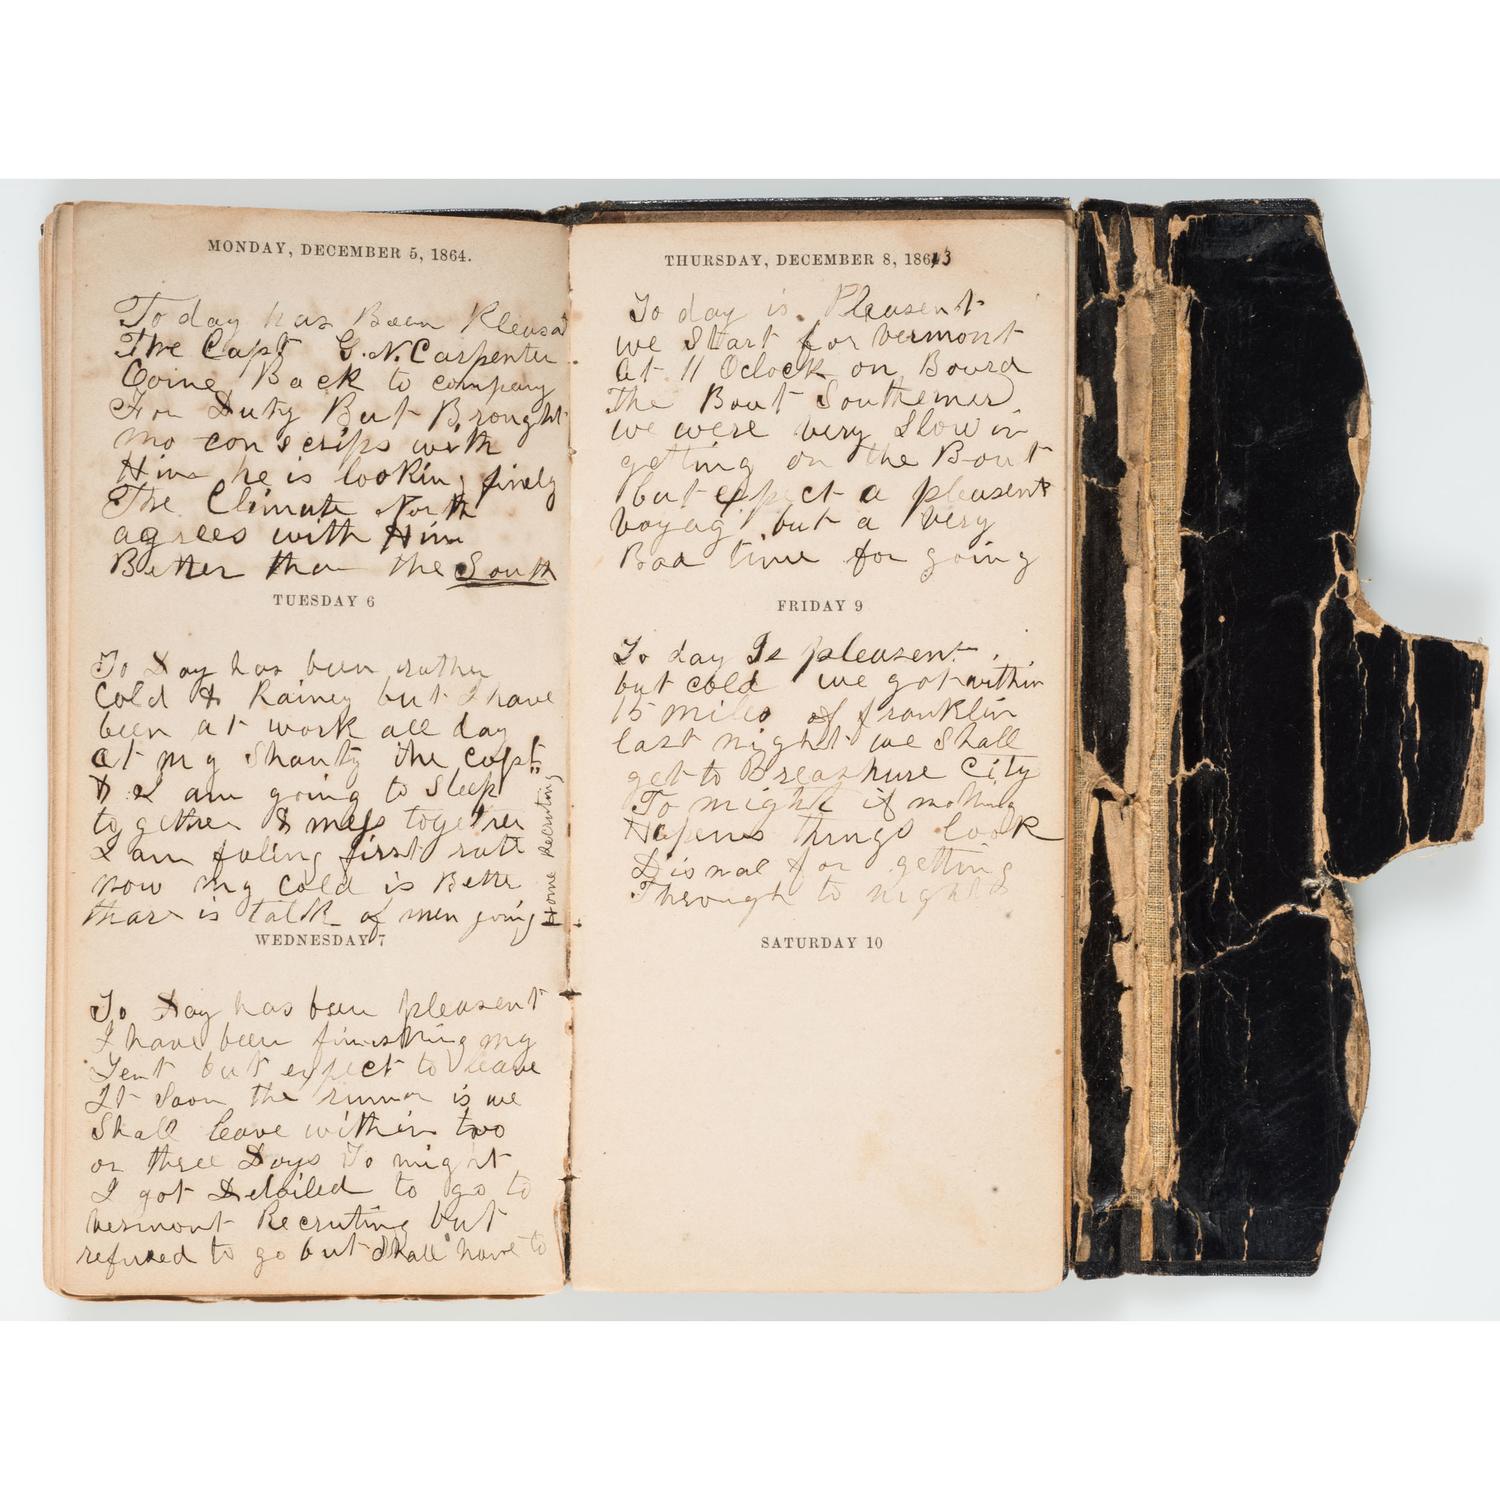 MONDAY, DECEMBER 5, 1864.
To day has Been Pleasat
The Capt G. N. Carpenter
Coime Back to company
For Duty But Brought
no conscrips with
Him he is looking finely
The Climate North
agrees with Him
Better than the South
TUESDAY 6
To Day has been rather
Cold & Rainey but I have
been at work all day
at my Shanty the capt
& I am going to Sleep
to gether & mess together
I am faling first rate
now my cold is Bette
thare is talk of men going
Home Recruting
WEDNESDAY 7
To Day has been pleasent
I have been finnishing my
Tent but expect to leave
It Soon the rumor is we
Shall leave within two
or three Days To night
I got Detailed to go to
vermont Recruting but
refused to go but Shall have to
THURSDAY, DECEMBER 8, 1863
To day is Pleasent
we Start for vermont
At 11 Oclock on Board
The Boat Southerner
we were very Slow in
getting on the Boat
but expect a pleasent
voyag but a very
Bad time for going
FRIDAY 9
To day Is pleasent
but cold we got within
15 miles of franklin
last night we Shall
get to Breashure City
To night if nothing
Hapens things look
Disnal for getting
Through to night
SATURDAY 10